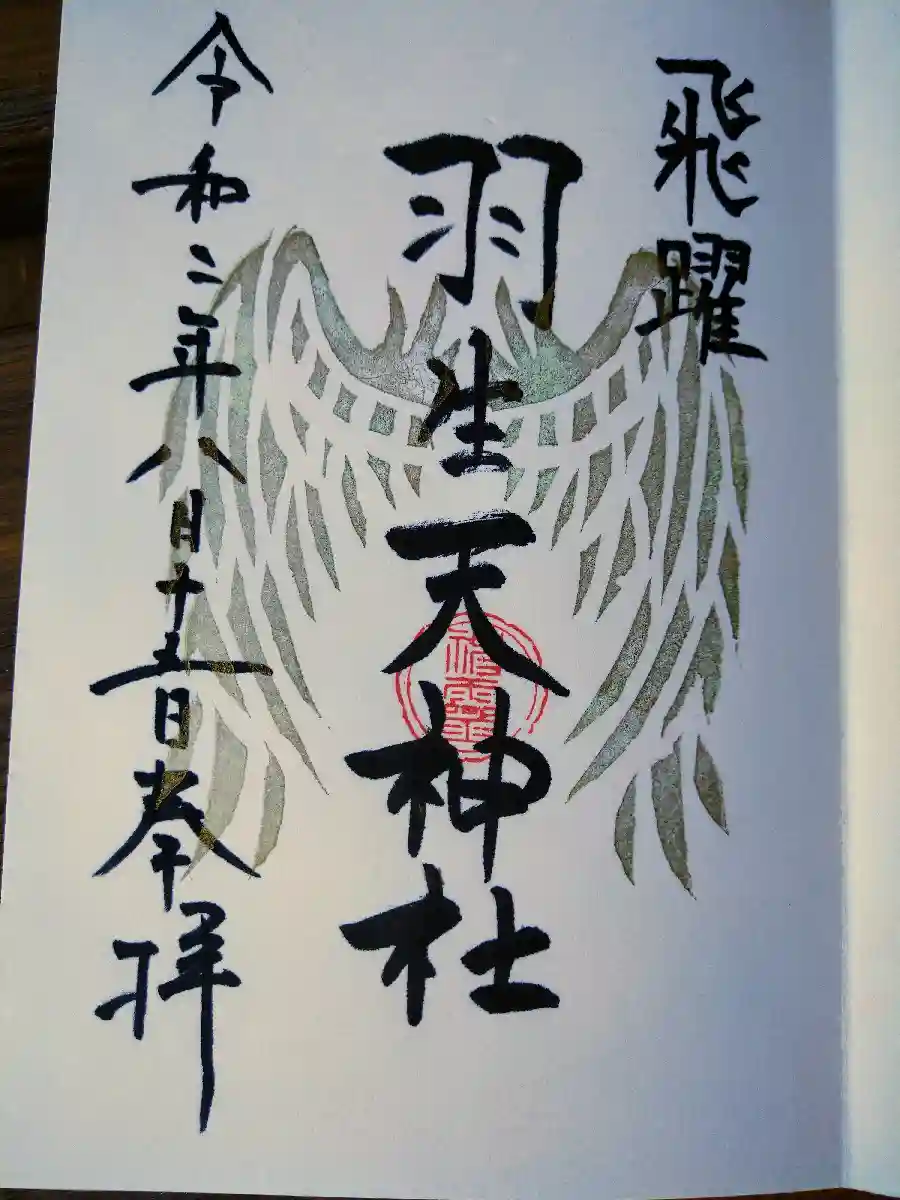 飛躍
羽生天神社
令和二年八月十五日奉拝